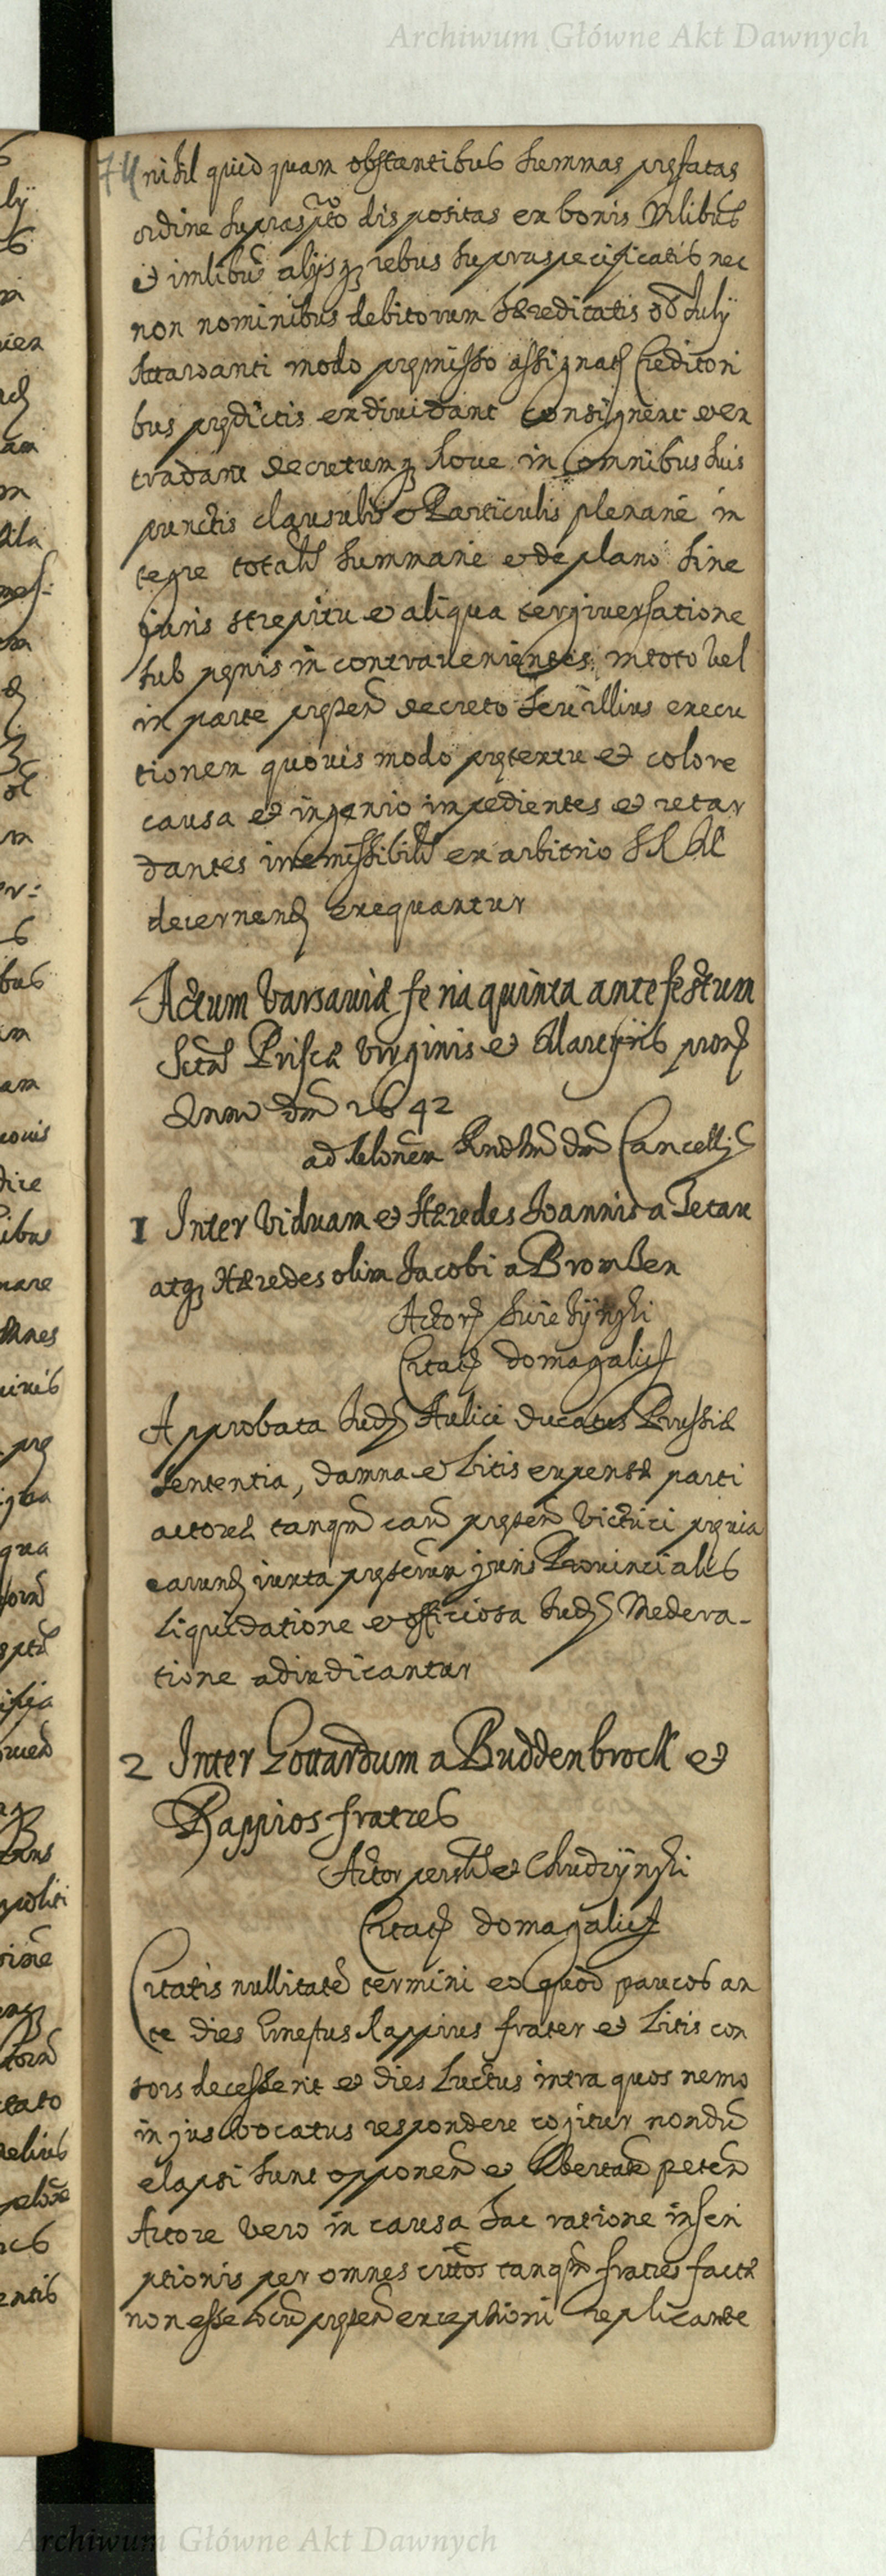 Archiwum Główne Akt Dawnych
74
nihil quid quam obstantibus summas pręfatas
ordine suprasc̃pto dispositas ex bonis Mlibus
et imlibus alijsq3 rebus supraspecificatis nec
non nominibus debitorum Hæreditatis
modo pręmisso assignatꝭ Creditori
bus prędictis exdividant consignent et ex
tradant decretumq3 hoce in omnibus suis
punctis clausulis et Particulis plenarie in
tegre totalr̃ summarie et de plano sine
juris strepitu et aliqua tergiversatione
sub pęnis in contravenientes, in toto vel
in parte pręsen̄ decreto seu illius execu
tionem quovis modo prętextu et colore
causa et ingenio impedientes et retar
dantes irremissibilr̃ ex arbitrio S R M
decernendꝭ exequantur
Actum Varsaviæ feria quinta ante festum
Sctæ Priscæ Virginis et Martyris proxꝭ
Anno dn̄i 1642
ad relōnem Rndssmi dn̄i Cancellrij
1 Inter Viduam et Hæredes Joannis a Tetau
atq3 Hæredes olim Jacobi a Bromsen
Actorꝭ
Citatꝭ Domagalicꝭ
Approbata Judꝭ Aulici Ducatus Prussiæ
sententia, damna et Litis expensæ parti
actoreæ tanqm̄ caū pręsen̄ Victrici pręvia
earundꝭ iuxta pręscrum juris Provincialis
liquidatione et officiosa Judꝭ Medera-
tione adiudicantur
2 Inter Gottardum a Buddenbrock et
Rappios fratres
Actor persr̃ et Chudzÿnski
Citatꝭ Domagalicꝭ
Citatis nullitatē termini eo quod paucos an
te dies Ernestus Rappius frater et Litis con
sors decesserit et dies Luctus intra quos nemo
in jus vocatus respondere cogitur nondū
elapsi sunt opponen̄ et libertatē peten̄
Actore vero in causa hac ratione inscri
ptionis per omnes cittos tanqm̄ fratres factæ
non esse locū pręsen̄ exceptioni replicante
Archiwum Główne Akt Dawnych